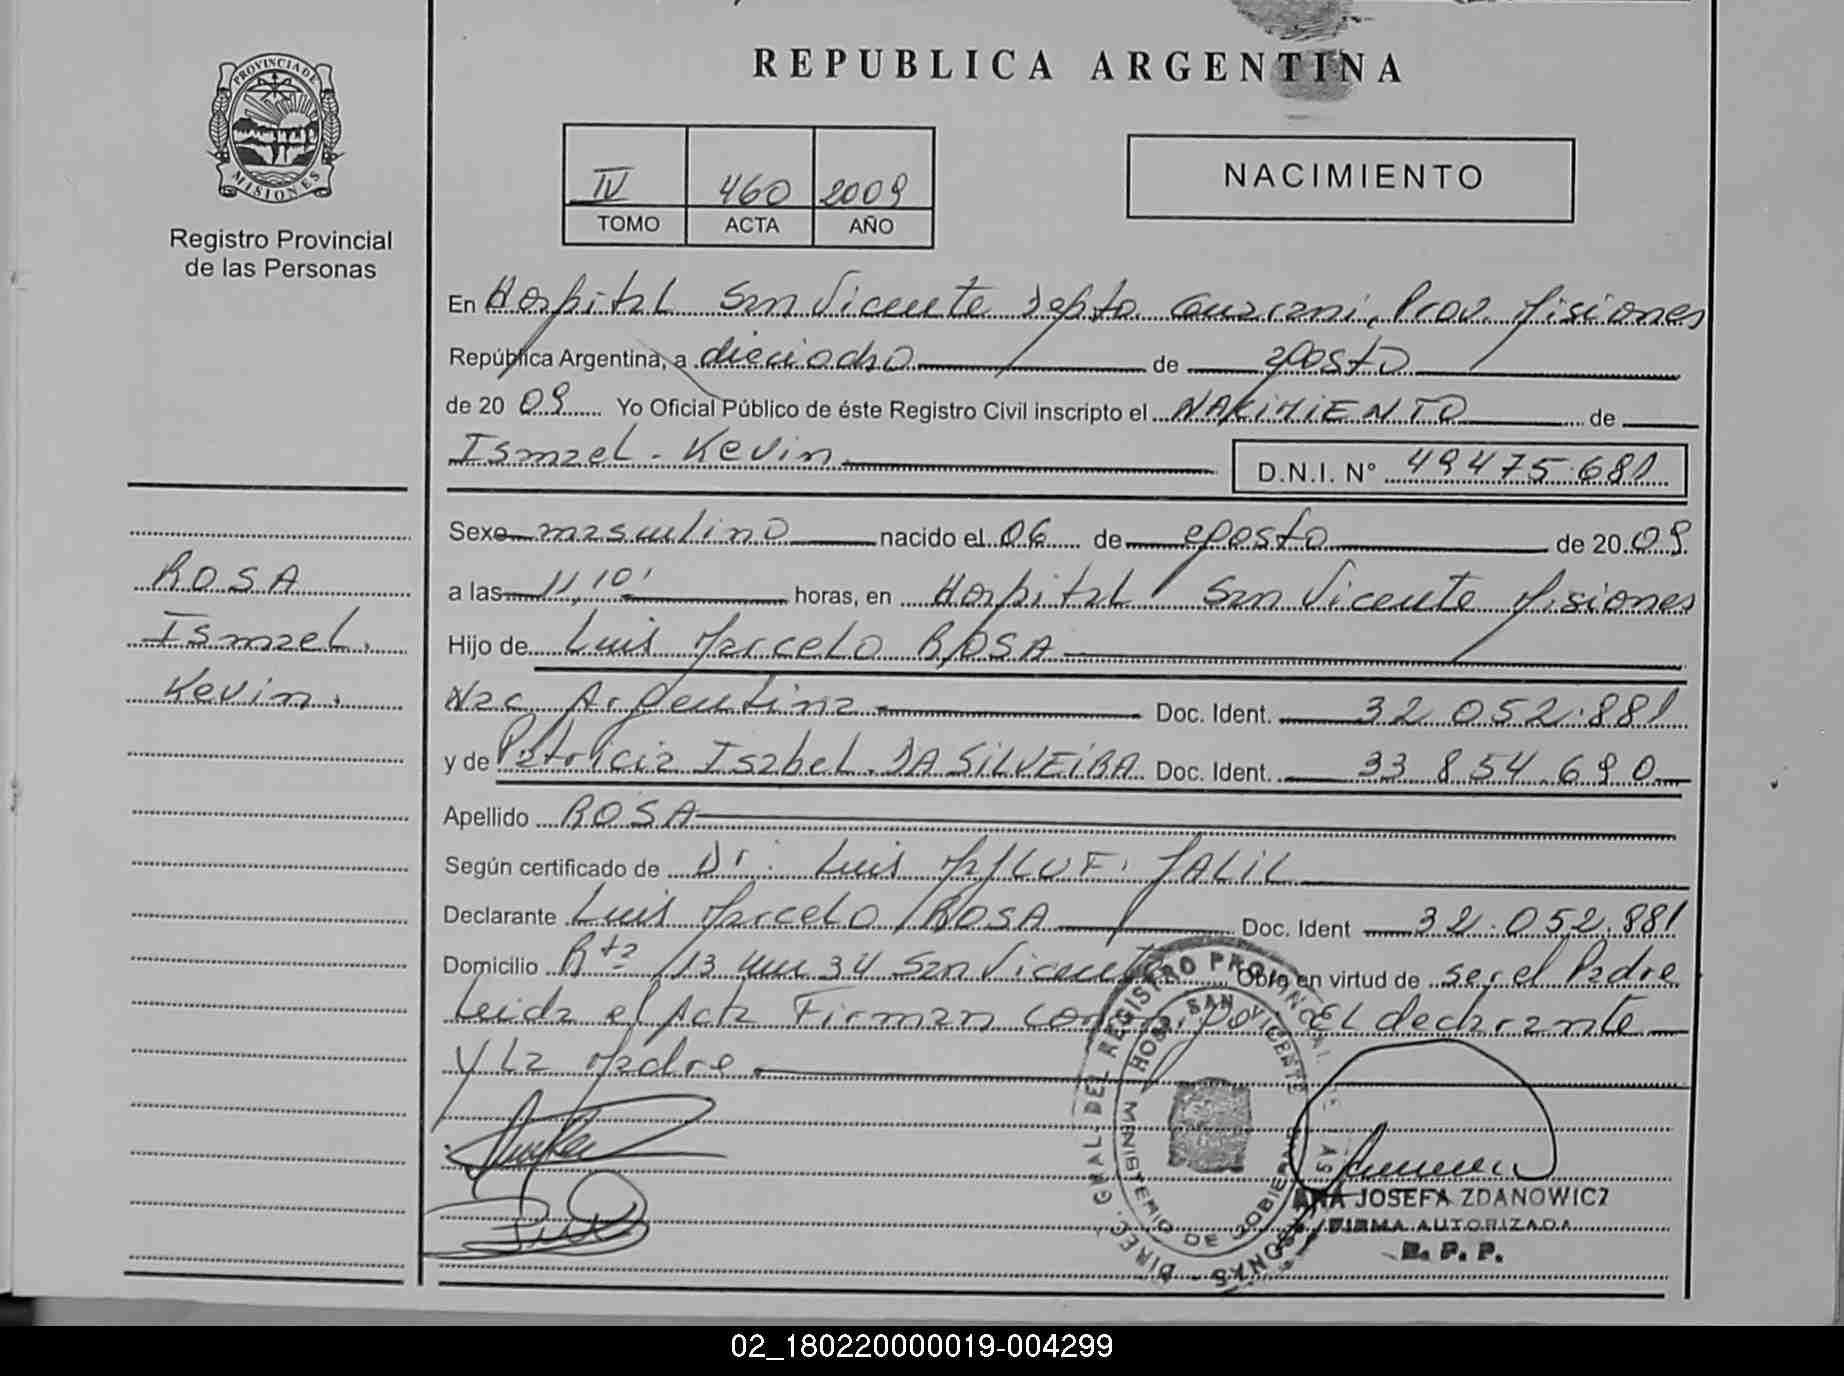 REPUBLICA ARGENTINA
PROVINCIA DE MISIONES
Registro Provincial
de las Personas
IV 460 2009
TOMO ACTA AÑO
NACIMIENTO
En Hospital San Vicente Depto Guarani, Prov. Misiones
República Argentina, a dieciocho de agosto
de 20 09 Yo Oficial Público de éste Registro Civil inscripto el NAKIMIENTO de
Ismael - Kevin D.N.I. N° 49475.681
Sexo masculino nacido el 06 de agosto de 20 09
a las 11,10' horas, en Hospital San Vicente Misiones
Hijo de Luis Marcelo ROSA
Nac Argentina Doc. Ident. 32.052.881
y de Patricia Isabel DA SILVEIRA Doc. Ident. 33 854.690
Apellido ROSA
Según certificado de Dr: Luis JALIL
Declarante Luis Marcelo ROSA Doc. Ident 32.052.881
Domicilio Rta 13 km 34 San Vicente Obra en virtud de ser el Padre
Leida el Acta Firman El declarante
y La Madre
ROSA
Ismael.
Kevin.
DIREC. GRAL. DEL REGISTRO PROVINCIAL DE LAS PERSONAS
HOSP. SAN VICENTE
MINISTERIO DE GOBIERNO
ANA JOSEFA ZDANOWICZ
FIRMA AUTORIZADA
R. P. P.
02_180220000019-004299